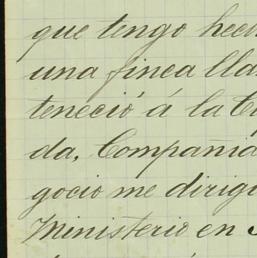 que tengo hech
una finca lla
teneció á la C
da, Compañia
gocio me dirigi
Ministerio en S